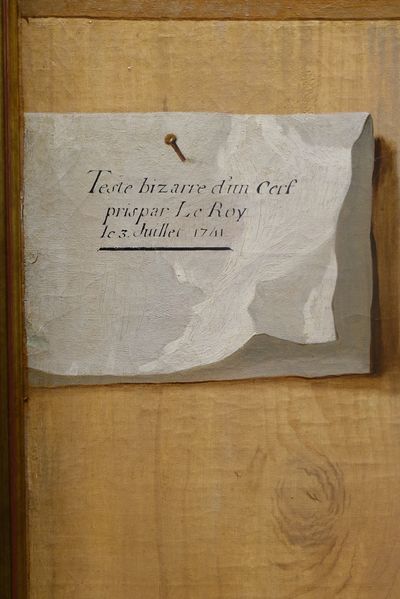 Teste bizarre d'un Cerf
pris par Le Roy
le 3. Juillet 1741